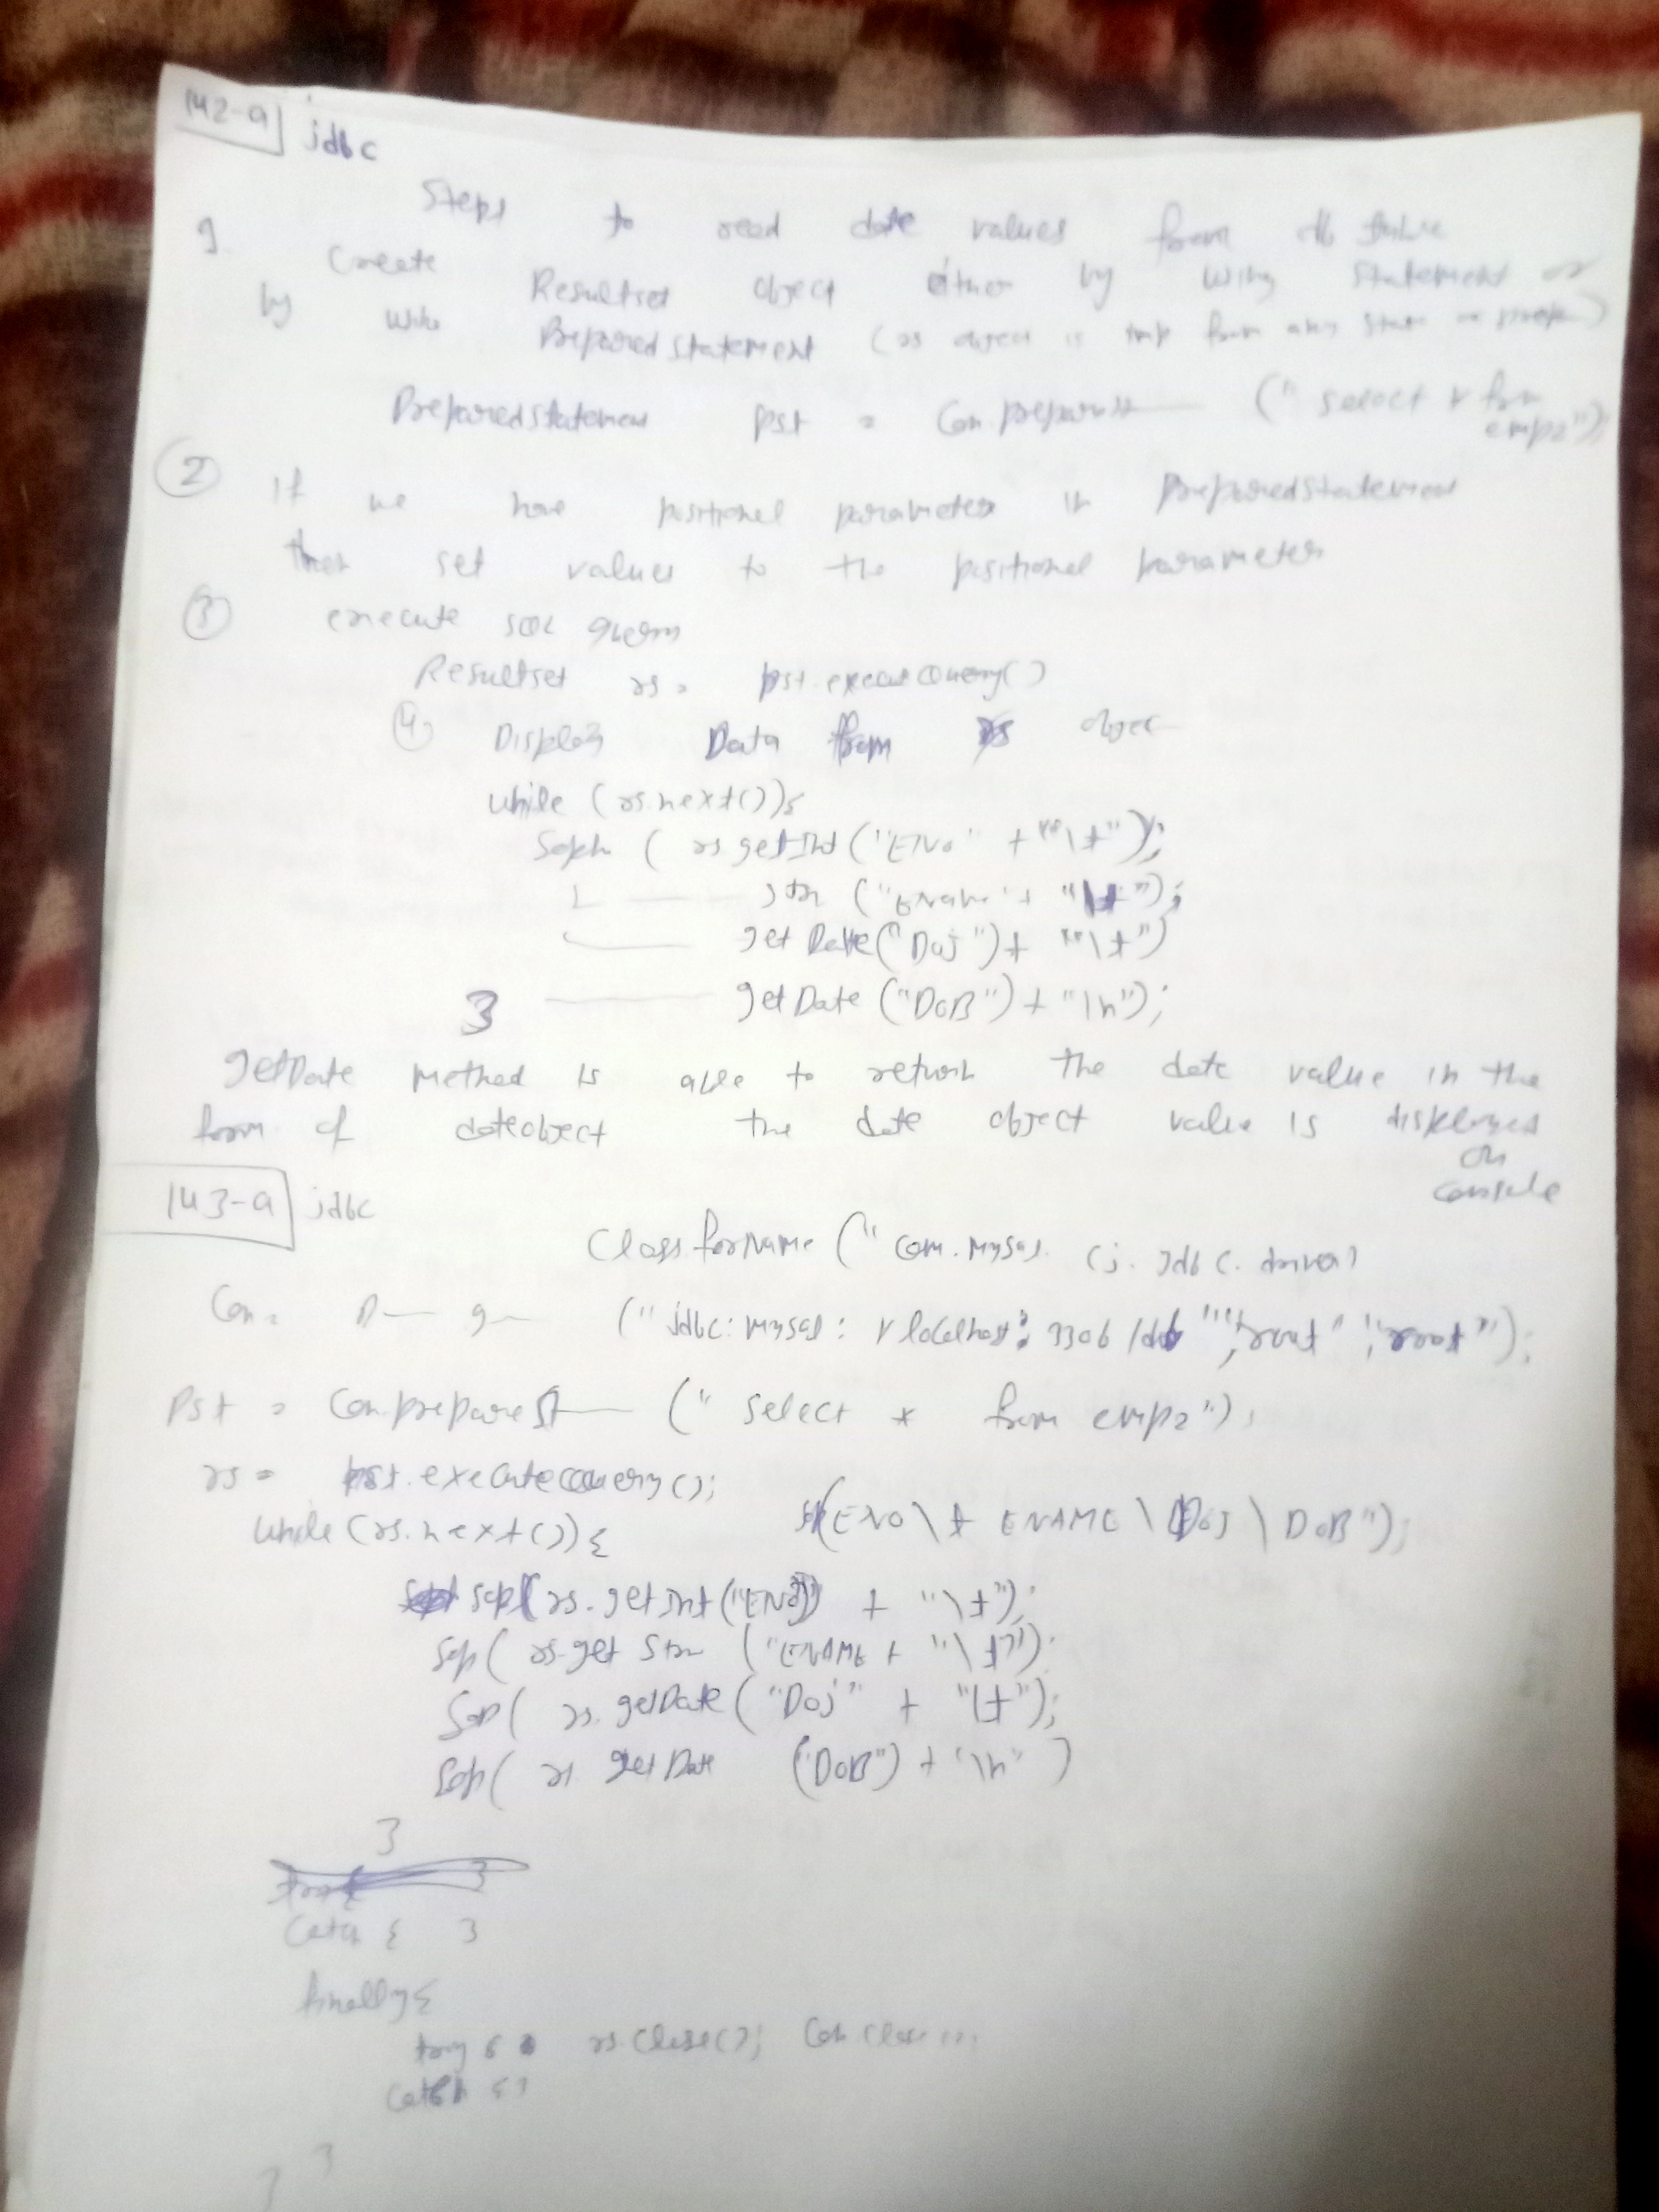 142-a jdbc
Steps to read date values from db table
1. Create Resultset object either by using Statement or
by using PreparedStatement (rs object is from any
PreparedStatement pst = Con.prepareSt—— ("select * from
emp2");
② If we have positional parameters in PreparedStatement
then set values to the positional parameter
③ execute SQL query
Resultset rs = pst.executeQuery()
④ Display Data from rs object
while (rs.next()){
Sopln ( rs getInt ("ENo" + "\t");
str ("Ename" + "\t");
get Date("Doj") + "\t")
getDate ("DOB") + "\n");
}
getDate method is able to return the date value in the
form of dateobject the date object value is displayed
on
console
143-a jdbc
Class.forName (" com.mysql. cj. jdbc. driver)
Con = D—— g—— ("jdbc:mysql: localhost: 3306 /db", "root", "root");
Pst = Con.prepareSt—— (" select * from emp2");
rs = pst.executeQuery();
while (rs.next()) { (ENO \t ENAME \ Doj \ DOB");
sop(rs.getInt("ENO") + "\t");
Sop( rs get Str ("ENAME + "\t");
Sop( rs. getDate ("Doj" + "\t");
Sop( rs getDate ("DOB") + "\n" )
}
Catch { }
finally{
try { rs.close(); Con.close();
Catch { }
} }